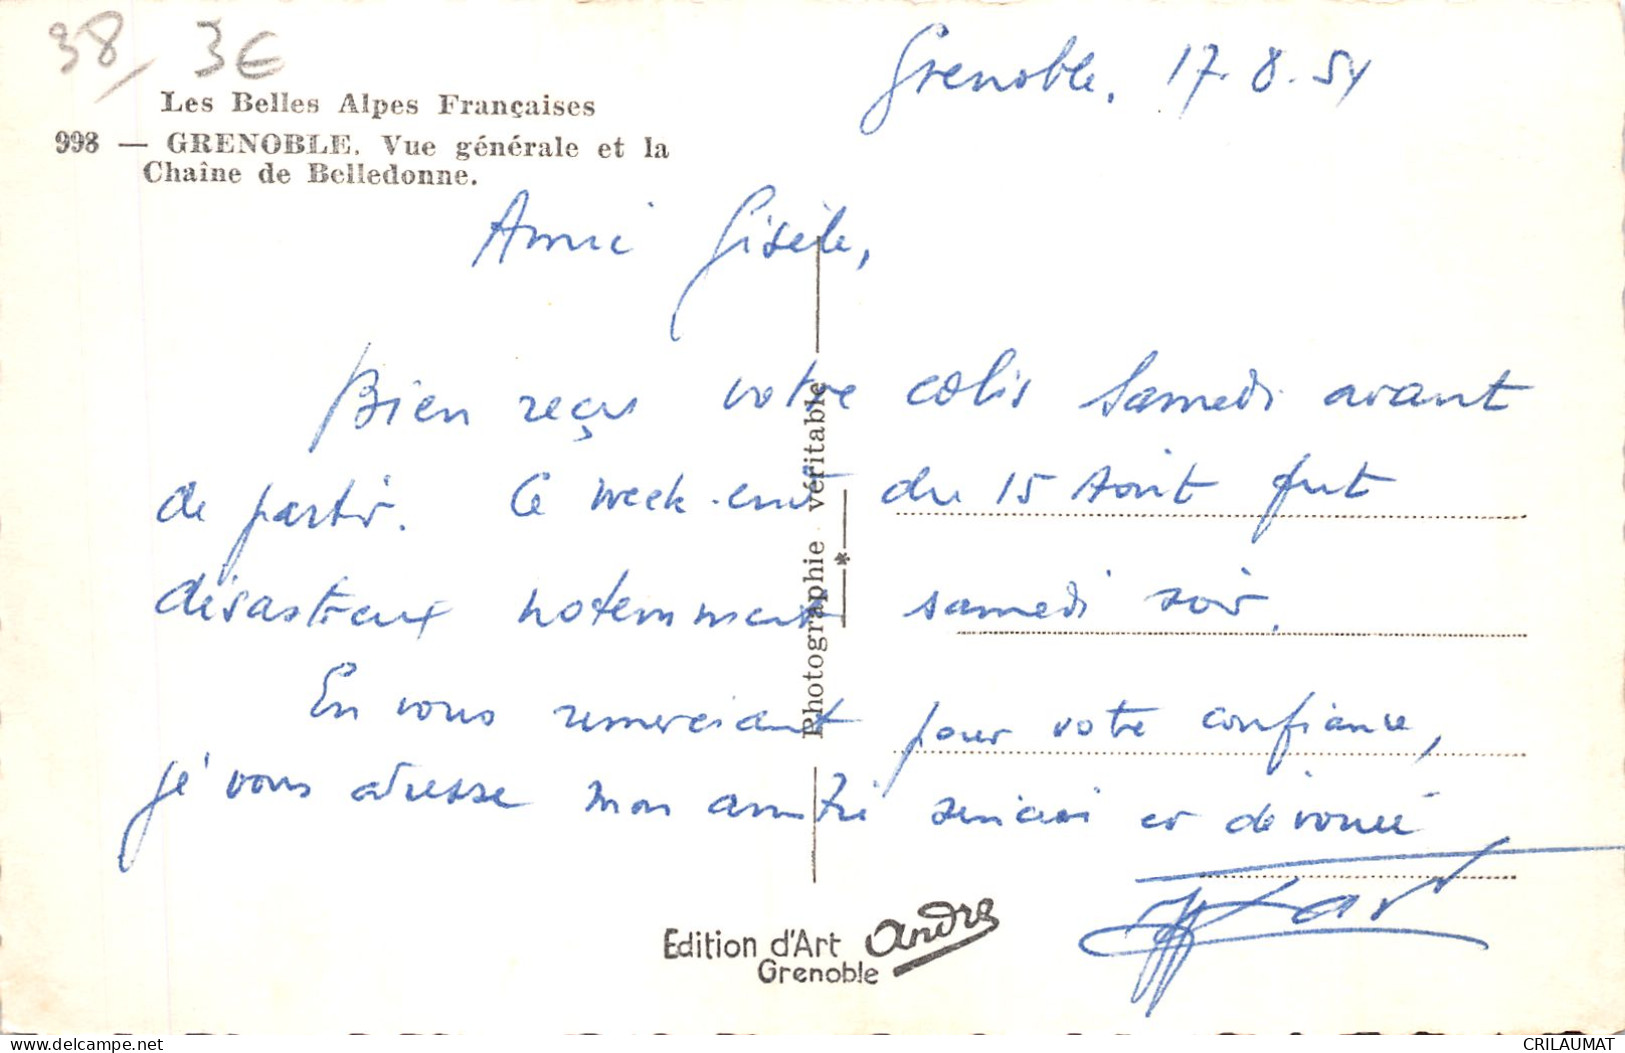 38/ 3€
Les Belles Alpes Françaises
998 — GRENOBLE. Vue générale et la
Chaîne de Belledonne.
Grenoble, 17.8.54
Amie Gisèle,
Bien reçu votre colis Samedi avant
de partir. Ce week-end du 15 Août fut
désastreux notemment samedi soir.
En vous remerciant pour votre confiance,
je vous adresse mon amitié sincère et dévouée
Photographie véritable
*
Edition d'Art André
Grenoble
CRILAUMAT